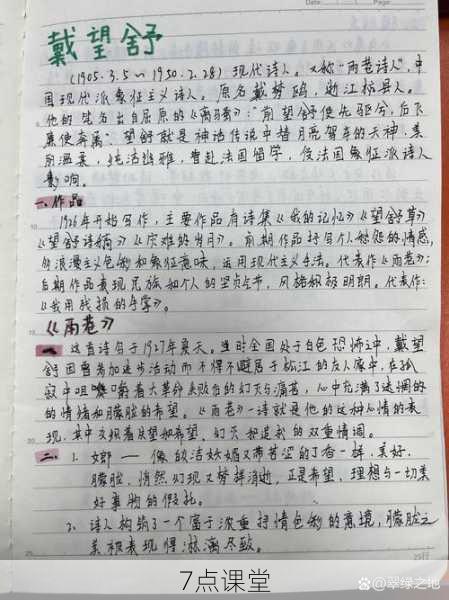 Date:
戴望舒
(1905.3.5~1950.2.28)现代诗人。又称“雨巷诗人”,中
国现代派象征主义诗人。原名戴梦鸥,浙江杭县人。
他的笔名出自屈原的《离骚》:“前望舒使先驱兮,后飞
廉使奔属”望舒就是神话传说中替月亮驾车的天神,美
丽温柔,纯洁幽雅,曾赴法国留学,受法国象征派诗人
影响。
一.作品
1926年开始写作,主要作品有诗集《我的记忆》《望舒草》
《望舒诗稿》《灾难的岁月》。前期作品抒写个人愁怨的情感,
有浪漫主义色彩和象征意味,运用现代主义手法。代表作《雨巷》;
后期作品表现民族和个人的坚贞气节,风格积极明朗。代表作:
《我用残损的手掌》。
《雨巷》
一 这首诗写于1927年夏天。当时全国处于白色恐怖之中,戴望
舒因曾参加进步活动而不得不避居于松江的友人家中,在孤
寂中咀嚼着大革命失败后的幻灭与痛苦,心中充满了迷惘的
的情绪和朦胧的希望。《雨巷》一诗就是他的这种心情的表
现,其中交织着失望和希望、幻灭和追求的双重情调。
二、1.女郎——像的洁妖媚又带苦涩的丁香一样,美好.
朦胧,悄然幻现又娇柔消逝,正是希望,理想与一切美
好事物的假托。
2.诗人构筑了一个富于浓重抒情色彩的意境,朦胧之
美被表现得淋漓尽致。
7点课堂
@翠绿之地